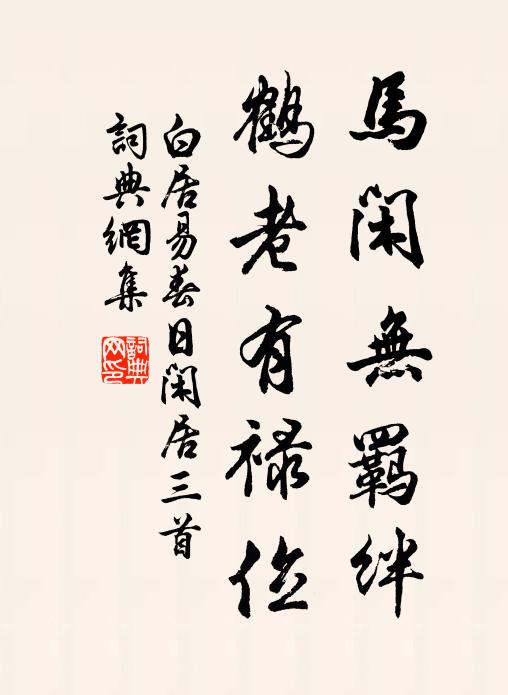 馬閑無羈絆
鶴老有禄位
白居易春日閑居三首
詞典網集
詞典网印